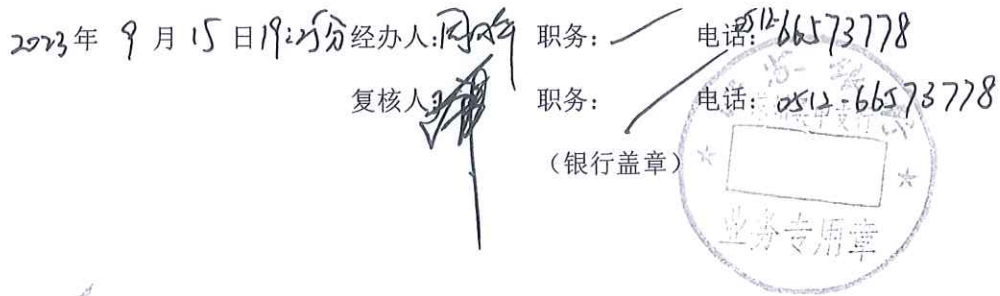 2023年 9月15日19:25分经办人: 职务: 电话:0512-66573778
复核人: 职务: 电话:0512-66573778
(银行盖章)
业务专用章